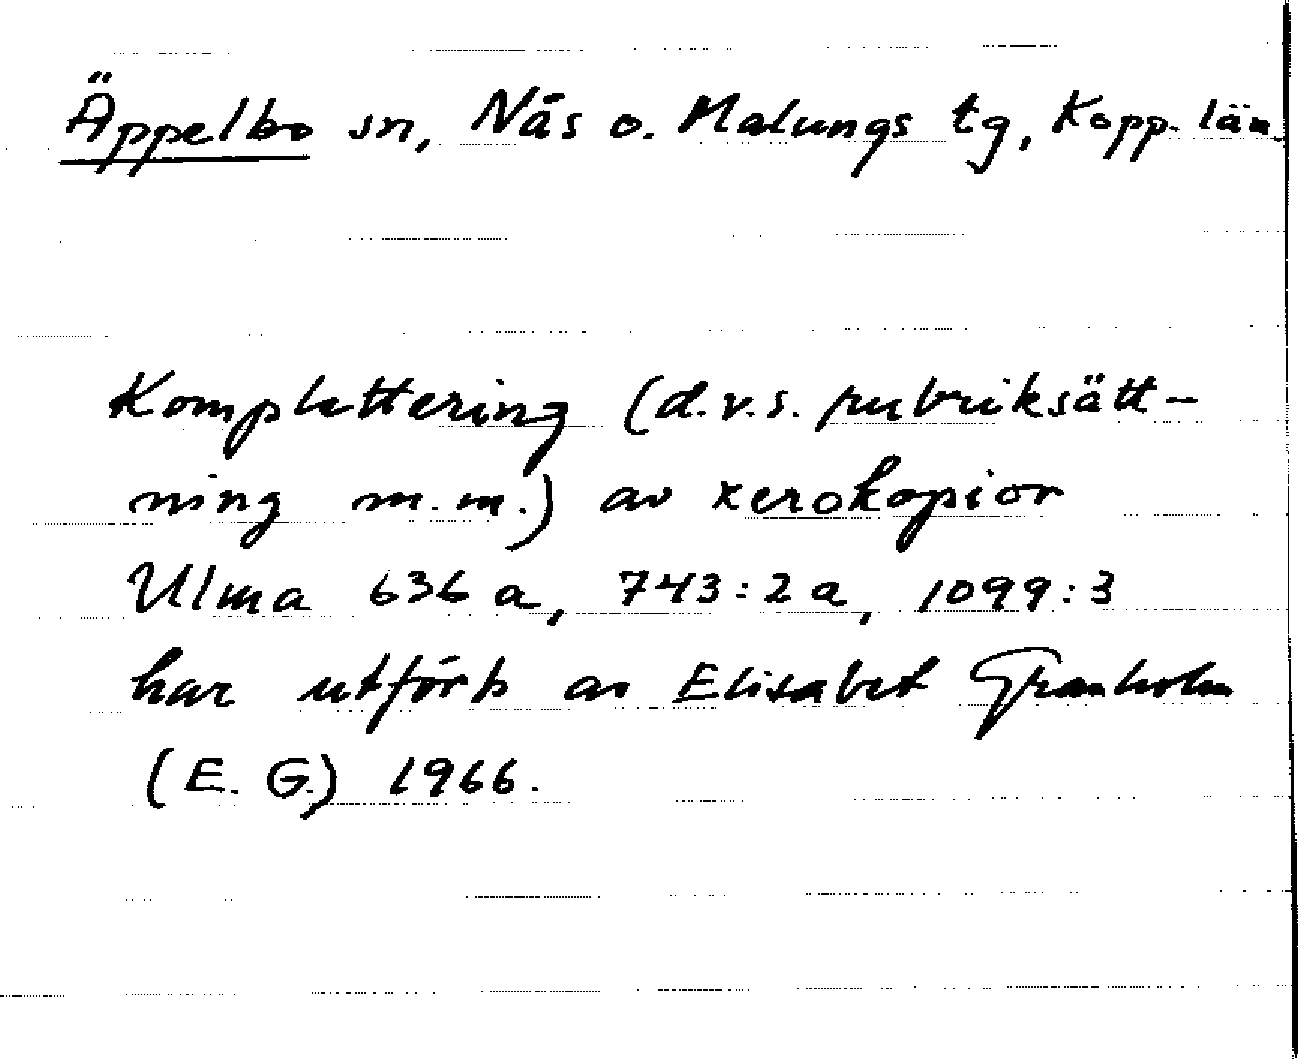 Äppelbo sn, Nås o. Malungs tg, Kopp. län.
Komplettering (d.v.s. rubriksätt-
ning m.m.) av xerokopior
Ulma 636 a, 743:2 a, 1099:3
har utförts av Elisabet Granholm
(E. G.) 1966.